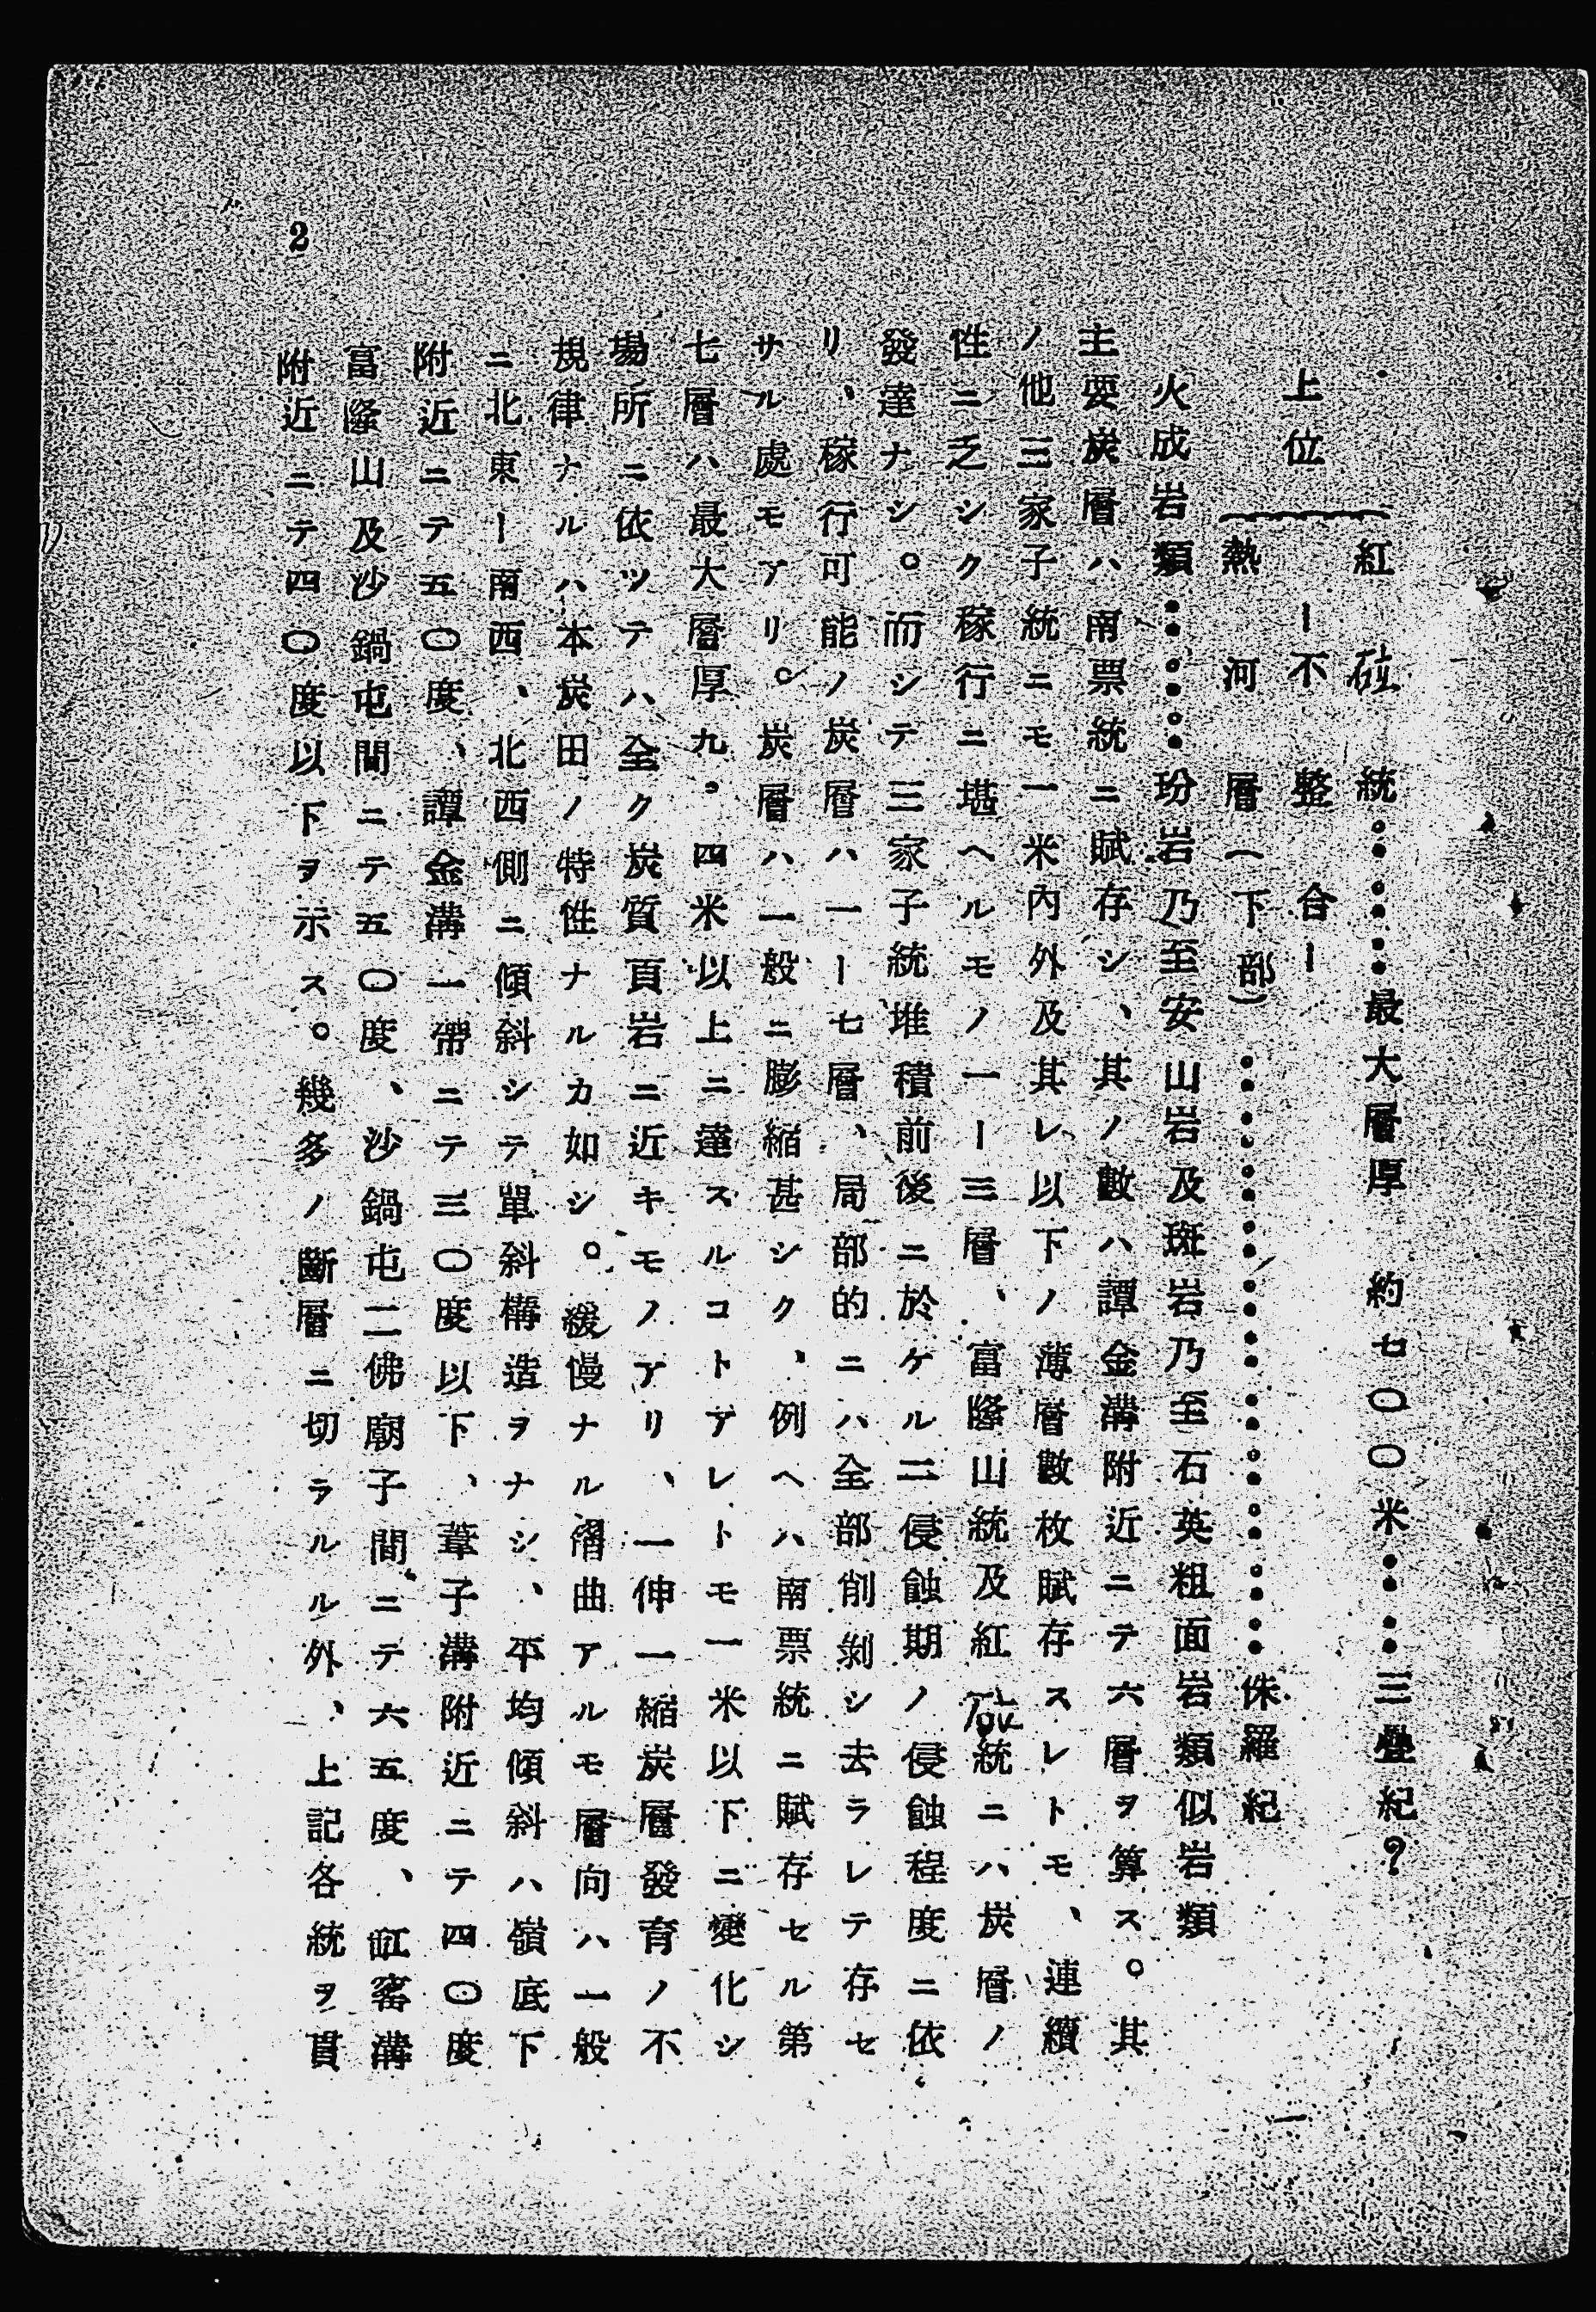 紅砬統……最大層厚 約七〇〇米……三疊紀?
上位 ー不整合ー
熱河層(下部)……………………侏羅紀
火成岩類………玢岩乃至安山岩及斑岩乃至石英粗面岩類似岩類
主要炭層ハ南票統ニ賦存シ、其ノ數ハ譚金溝附近ニテ六層ヲ算ス。其
ノ他三家子統ニモ一米內外及其レ以下ノ薄層數枚賦存スレトモ、連續
性ニ乏シク稼行ニ堪ヘルモノ一ー三層、富隆山統及紅砬統ニハ炭層ノ
發達ナシ。而シテ三家子統堆積前後ニ於ケル二侵蝕期ノ侵蝕程度ニ依
リ、稼行可能ノ炭層ハ一ー七層、局部的ニハ全部削剝シ去ラレテ存セ
サル處モアリ。炭層ハ一般ニ膨縮甚シク、例ヘハ南票統ニ賦存セル第
七層ハ最大層厚九。四米以上ニ達スルコトアレトモ一米以下ニ變化シ
場所ニ依ツテハ全ク炭質頁岩ニ近キモノアリ、一伸一縮炭層發育ノ不
規律ナルハ本炭田ノ特性ナルカ如シ。緩慢ナル褶曲アルモ層向ハ一般
ニ北東ー南西、北西側ニ傾斜シテ單斜構造ヲナシ、平均傾斜ハ嶺底下
附近ニテ五〇度、譚金溝一帶ニテ三〇度以下、葦子溝附近ニテ四〇度
富隆山及沙鍋屯間ニテ五〇度、沙鍋屯二佛廟子間ニテ六五度、缸窰溝
附近ニテ四〇度以下ヲ示ス。幾多ノ斷層ニ切ラルル外、上記各統ヲ貫
2